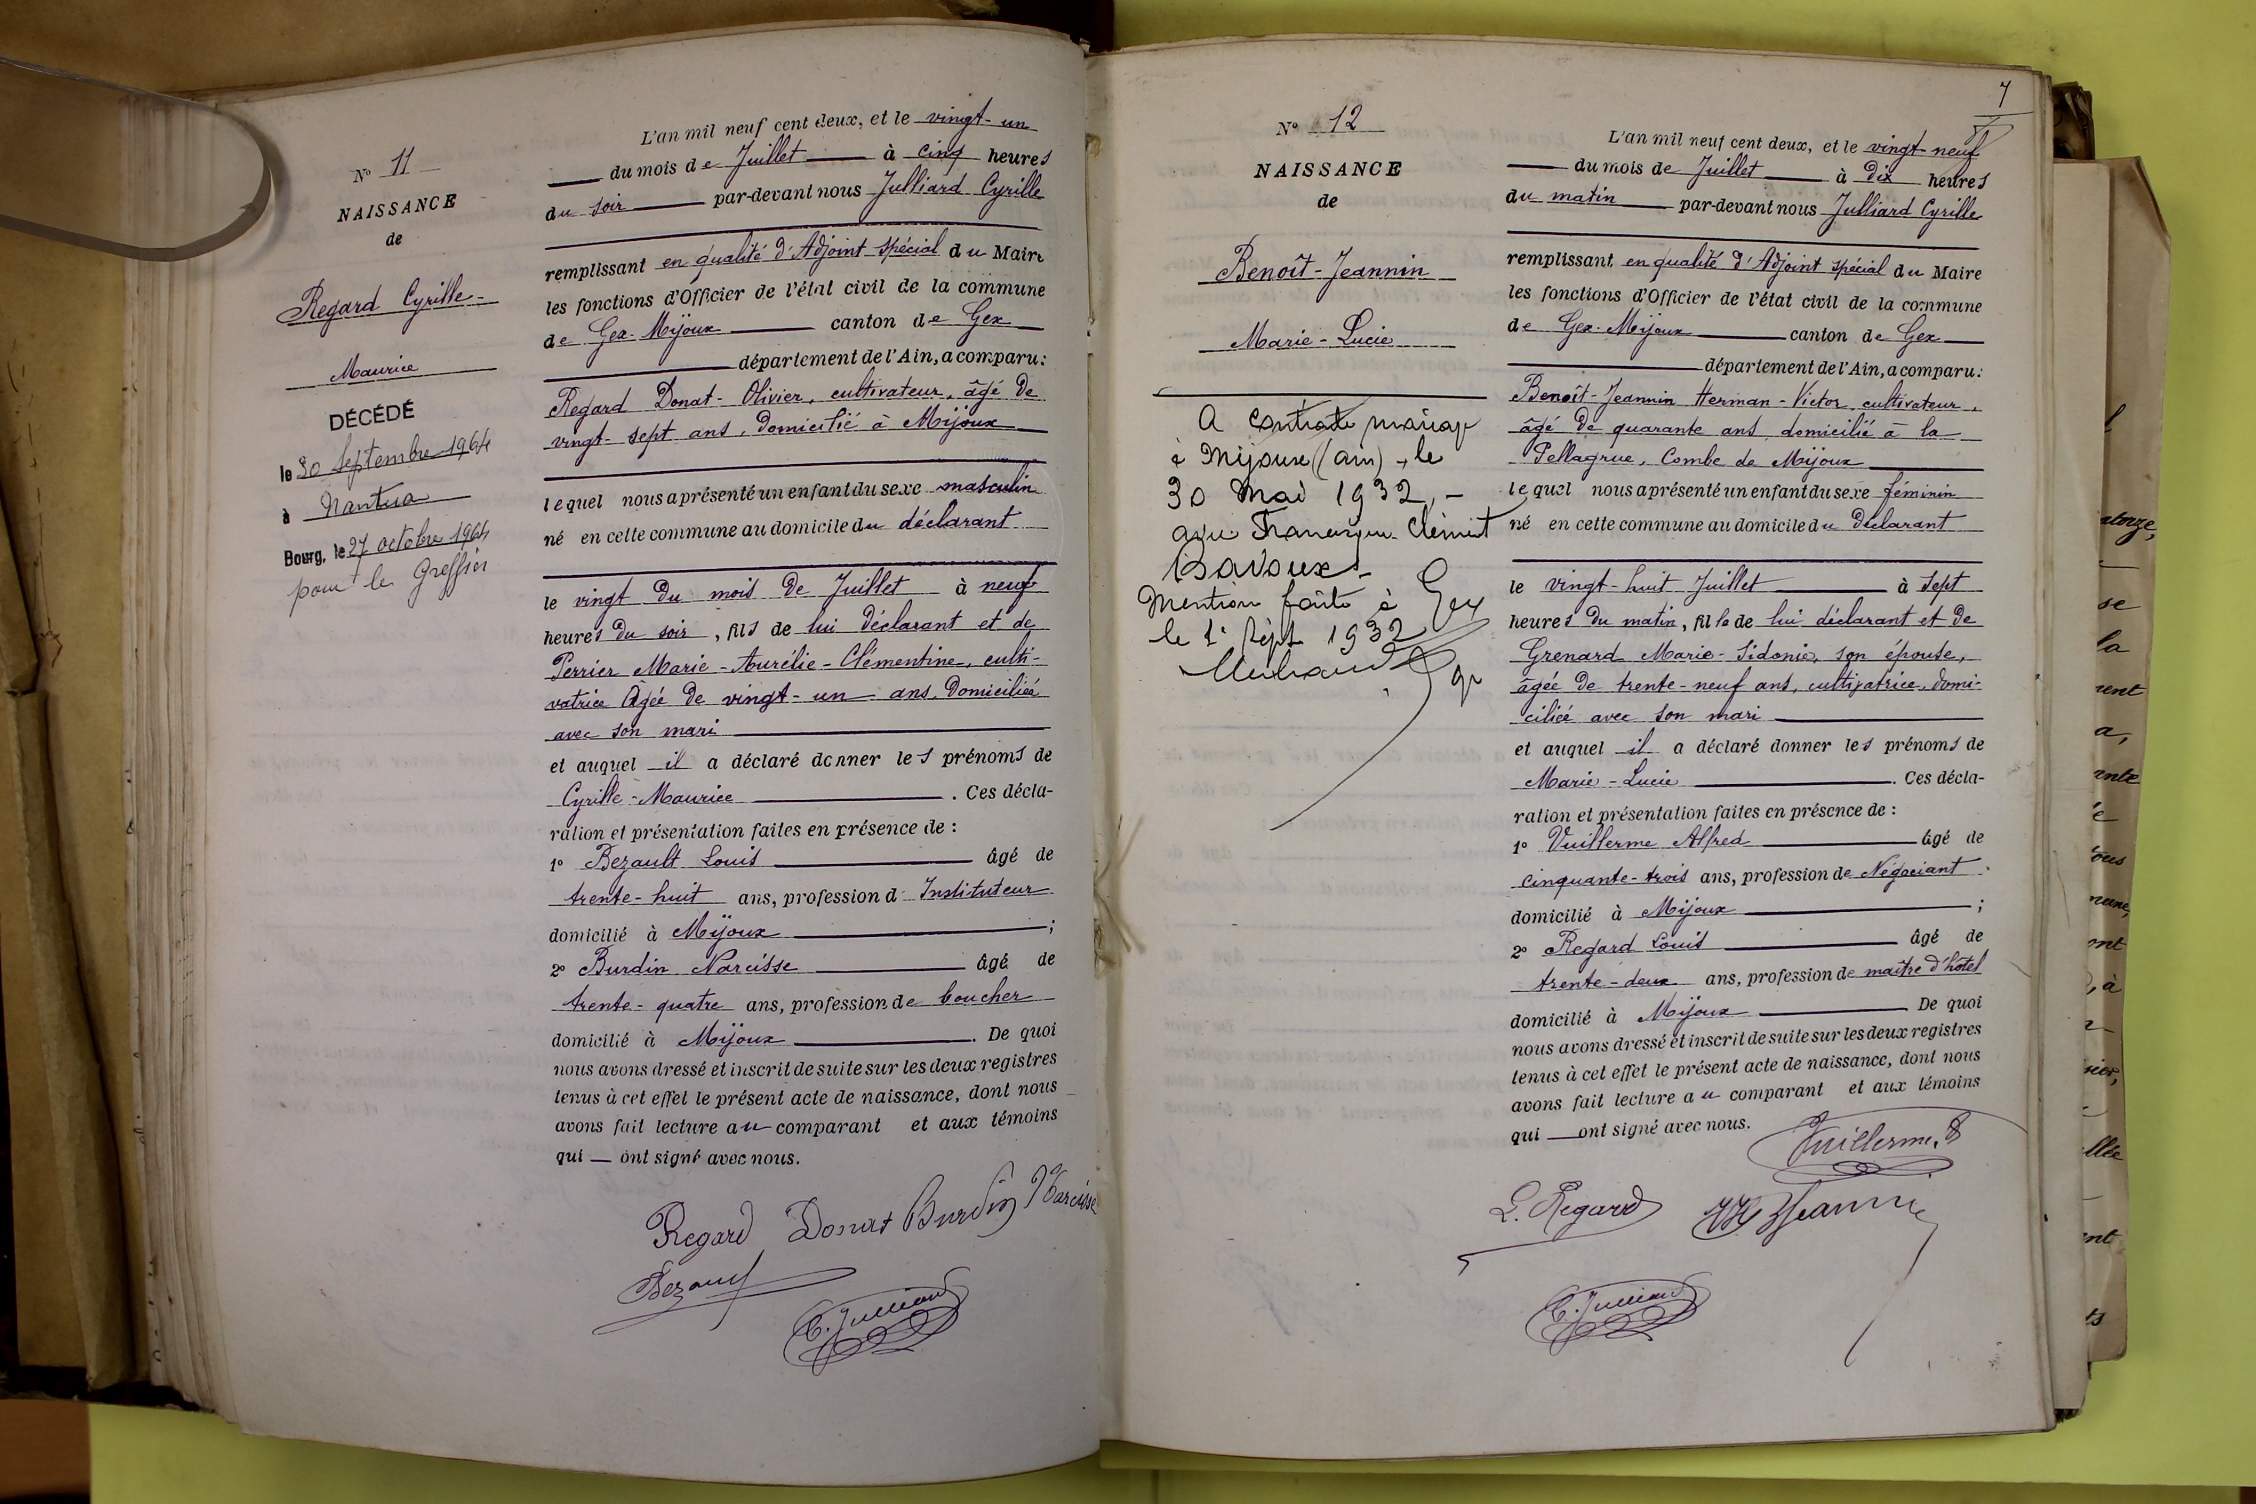 N° 11
NAISSANCE
de
Regard Cyrille-
Maurice
DÉCÉDÉ
le 30 Septembre 1964
à Nantua
Bourg, le 27 octobre 1964
pour le Greffier
L'an mil neuf cent deux, et le vingt-un
du mois de Juillet à cinq heures
du soir par-devant nous Julliard Cyrille
remplissant en qualité d'Adjoint spécial du Maire
les fonctions d'Officier de l'état civil de la commune
de Gex-Mijoux canton de Gex
département de l'Ain, a comparu:
Regard Donat-Olivier, cultivateur, âgé de
vingt-sept ans, domicilié à Mijoux
lequel nous a présenté un enfant du sexe masculin
né en cette commune au domicile du déclarant
le vingt du mois de Juillet à neuf
heures du soir, fils de lui déclarant et de
Perrier Marie-Aurélie-Clémentine, culti-
vatrice âgée de vingt-un ans, domiciliée
avec son mari
et auquel il a déclaré donner les prénoms de
Cyrille-Maurice. Ces décla-
ration et présentation faites en présence de :
1° Bezault Louis âgé de
trente-huit ans, profession d'Instituteur
domicilié à Mijoux ;
2° Burdin Narcisse âgé de
trente-quatre ans, profession de boucher
domicilié à Mijoux. De quoi
nous avons dressé et inscrit de suite sur les deux registres
tenus à cet effet le présent acte de naissance, dont nous
avons fait lecture au comparant et aux témoins
qui ont signé avec nous.
Regard Donat Burdin Narcisse
Bezault
C. Julliard
7
N° 12
NAISSANCE
de
Benoît-Jeannin
Marie-Lucie
A contracté mariage
à Mijoux (ain), le
30 Mai 1932,
avec Clément
Bavoux
Mention faite à Gex
le 1er Sept 1932
L'an mil neuf cent deux, et le vingt neuf
du mois de Juillet à dix heures
du matin par-devant nous Julliard Cyrille
remplissant en qualité d'Adjoint spécial du Maire
les fonctions d'Officier de l'état civil de la commune
de Gex-Mijoux canton de Gex
département de l'Ain, a comparu:
Benoît-Jeannin Herman-Victor, cultivateur,
âgé de quarante ans domicilié à la
Pellagrue, Combe de Mijoux
lequel nous a présenté un enfant du sexe féminin
né en cette commune au domicile du déclarant
le vingt-huit Juillet à sept
heures du matin, fille de lui déclarant et de
Grenard Marie-Sidonie, son épouse,
âgée de trente-neuf ans, cultivatrice, domi-
ciliée avec son mari
et auquel il a déclaré donner les prénoms de
Marie-Lucie. Ces décla-
ration et présentation faites en présence de :
1° Vuillerme Alfred âgé de
cinquante-trois ans, profession de Négociant
domicilié à Mijoux ;
2° Regard Louis âgé de
trente-deux ans, profession de maître d'hôtel
domicilié à Mijoux De quoi
nous avons dressé et inscrit de suite sur les deux registres
tenus à cet effet le présent acte de naissance, dont nous
avons fait lecture au comparant et aux témoins
qui ont signé avec nous.
Vuillerme
L. Regard Jeannin
C. Julliard